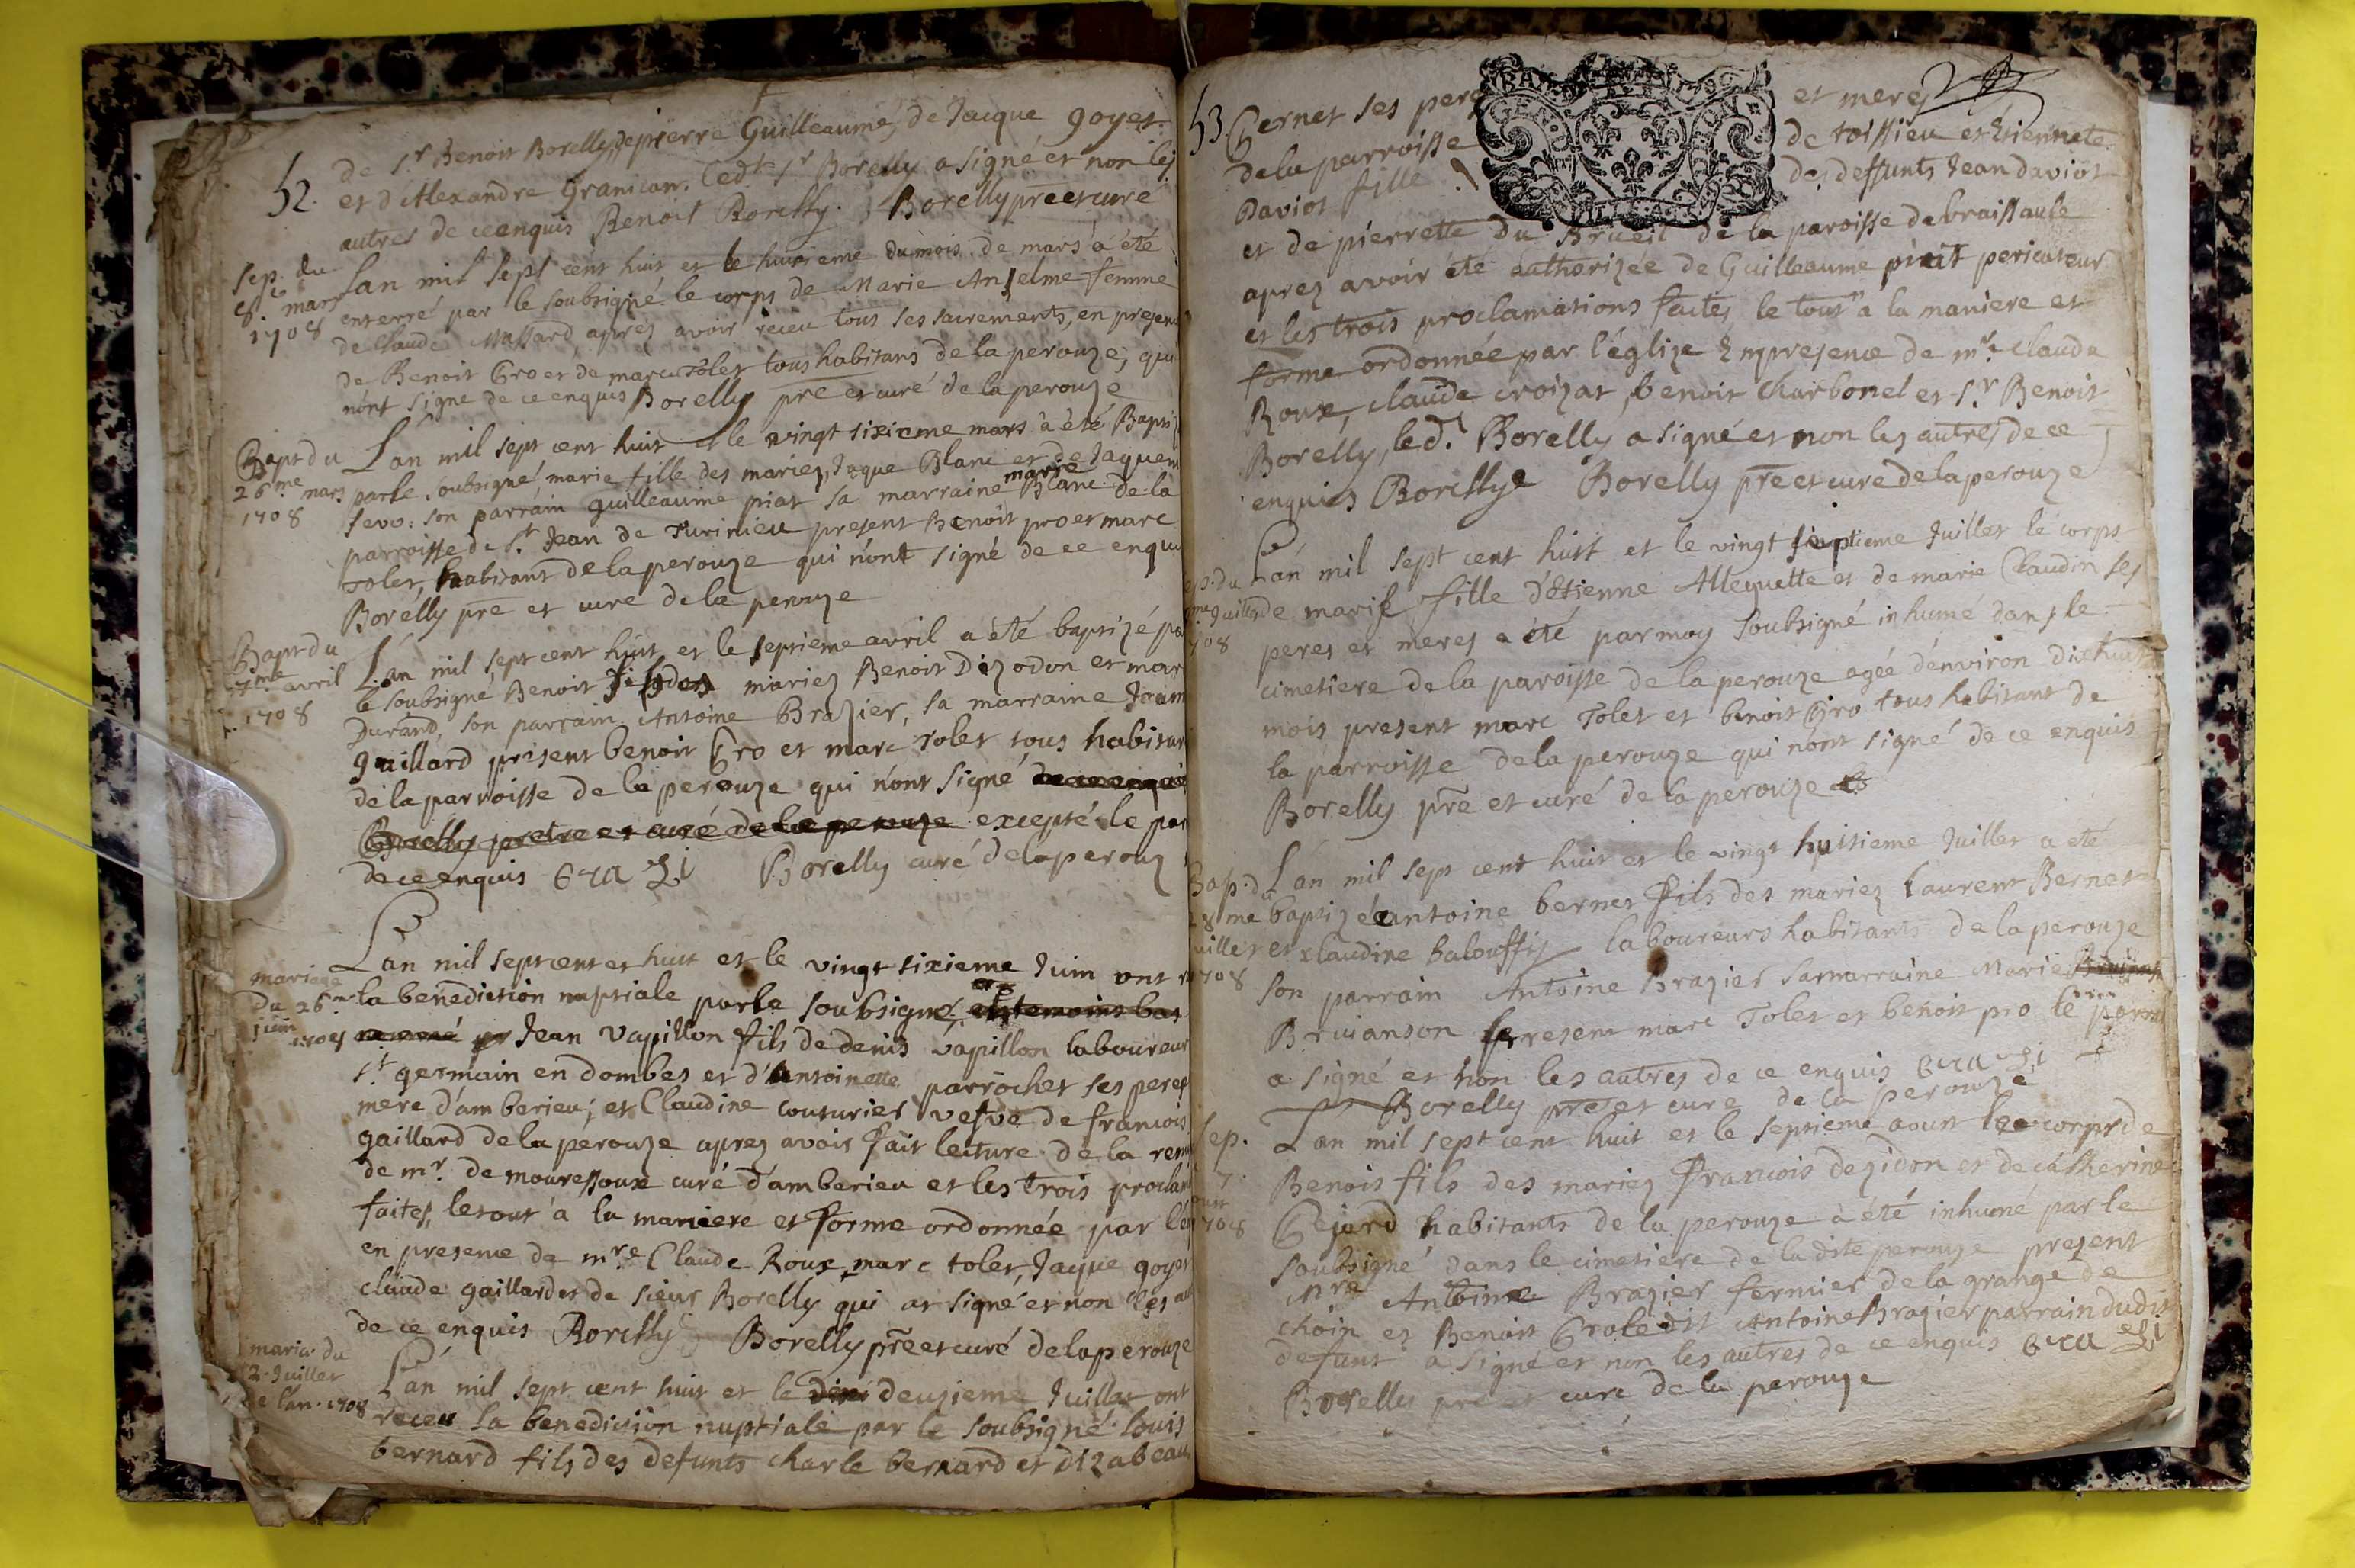 52.
de Sr Benoit Borelly, de pierre Guilleaume, de Jacque goyet
et d'Alexandre Granican. Ledt Sr Borelly a signé et non les
autres de ce enquis Benoit Borelly. Borelly pre et curé
Sep. du
8. mars
1708
Lan mil sept cent huit et le huitieme du mois de mars a été
enterré par le soubsigné le corps de Marie Anselme femme
de Claude Massard, aprez avoir receu tous ses sacrements, en presen
de Benoit Gro et de marc Tolet tous habitans de la perouze, qui
n'ont signé de ce enquis Borelly pre et curé de la perouze
Bapt du
26me mars
1708
L'an mil sept cent huit et le vingt sixieme mars à été Baptiz
par le soubsigné, marie fille des mariez, Jaque Blanc et de Jaquem
fevo: son parrain guilleaume piat sa marraine marie Blanc de la
parroisse de St Jean de Turinieu present Benoit pro et marc
Tolet, habitant de la perouze qui n'ont signé de ce enqui
Borelly pre et curé de la perouze
Bapt du
7me avril
1708
L'an mil sept cent huit et le septieme avril a été baptizé pa
le soubsigné Benoit fils des mariez Benoit Dezodon et mar
Durand, son parrain Antoine Brazier, sa marraine Jean
gaillard present benoit Gro et marc Tolet tous habitan
de la parroisse de la perouze qui n'ont signé de ce enquis
Borelly pretre et curé de la perouze excepté le par
de ce enquis Borelly curé de la perouz
mariage
du 26me
juin
1708
L'an mil sept cent et huit et le vingt sixieme Juin ont r
la benediction nuptiale par le soubsigné, et temoins bas
nommé Jean Vapillon fils de denis vapillon laboureur
St germain en dombes et d'Antoinette parrochet ses peres
mere d'amberieu; et Claudine couturier vefve de francois
gaillard de la perouze aprez avoir fait lecture de la remi
de mr. de mouressoux curé d'amberieu et les trois proclam
faites, le tout à la maniere et forme ordonnée par l'ég
en presence de mre Claude Roux, marc tolet, Jaque goyet
claude gaillard et de sieur Borelly qui at signé et non les au
de ce enquis Borelly Borelly pre et curé de la perouze
maria. du
2. Juillet
de l'an. 1708
L'an mil sept cent huit et le deuzieme Juillet ont
receu la benediction nuptiale par le soubsigné louis
bernard fils des defunts charle bernard et d'izabeau
53
Gernet ses peres et meres
de la parroisse de toissieu et Etiennete
Daviot fille des deffunts Jean daviot
et de pierrette du Brueil de la paroisse de braissaule
aprez avoir été authorizée de Guilleaume piat
et les trois proclamations faites, le tout a la maniere et
forme ordonnée par l'églize En presence de mre claude
Roux, claude croizat, benoit charbonel et Sr Benoit
Borelly, led. Borelly a signé et non les autres de ce
enquis Borelly Borelly pre et curé de la perouze
ep. du
me Juillet
708
L'an mil sept cent huit et le vingt septieme Juillet le corps
de marie fille d'Etienne Allequette et de marie Claudin ses
peres et meres a été par moy soubsigné inhumé dans le
cimetiere de la paroisse de la perouze agée d'environ dixhuit
mois present marc Tolet et benoit Gro tous habitant de
la parroisse de la perouze qui n'ont signé de ce enquis
Borelly pre et curé de la perouze
Bap. du
28me
uillet
708
L'an mil sept cent huit et le vingt huitieme Juillet a eté
baptizé antoine bernet fils des mariez laurent Bernet
et claudine balouffis laboureurs habitants de la perouze
son parrain Antoine brazier sa marraine Marie
Bruianson present marc Tolet et benoit pro le parrain
a signé et non les autres de ce enquis
Borelly pre et curé de la perouze
Sep.
7
out
708
L'an mil sept cent huit et le septieme aoust le corps de
Benoit fils des mariez francois dezidon et de catherine
Gejard habitants de la perouze à été inhumé par le
soubsigné dans le cimetiere de la dite perouze present
Mre Antoine Brazier fermier de la grange de
choin et Benoit Gro ledit Antoine Brazier parrain dudit
defunt a signé et non les autres de ce enquis
Borelly pre et curé de la perouze